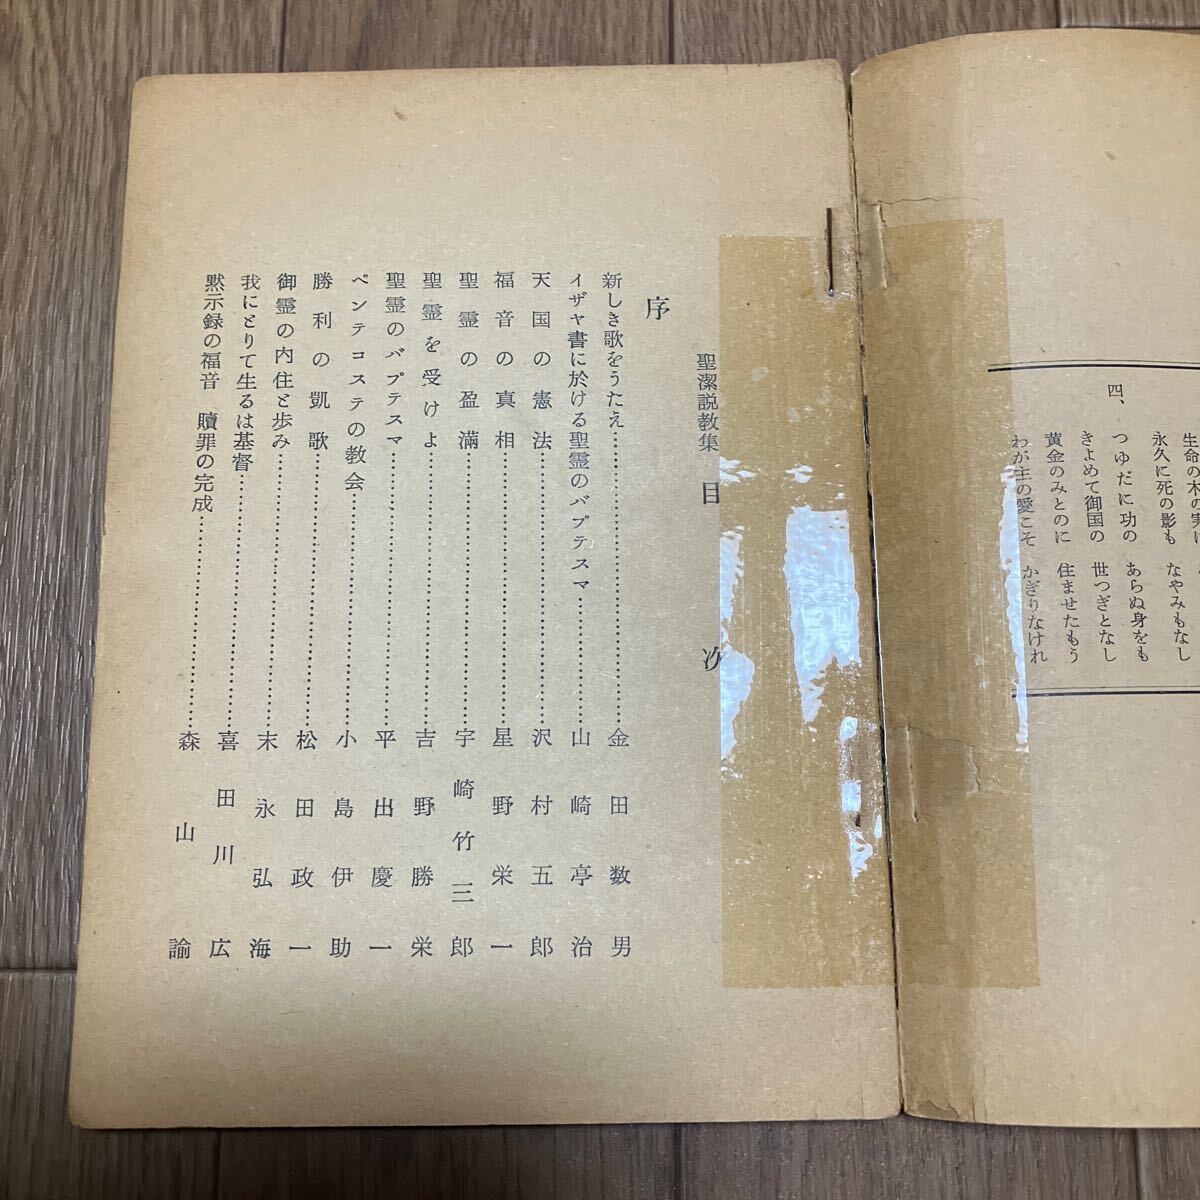 生命の木の実は
永久に死の影も　なやみもなし
四、
つゆだに功の　あらぬ身をも
きよめて御国の　世つぎとなし
黄金のみとのに　住ませたもう
わが主の愛こそ　かぎりなけれ
聖潔説教集　目　次
序
新しき歌をうたえ……………金田数男
イザヤ書に於ける聖霊のバプテスマ……………山崎亭治
天国の憲法……………沢村五郎
福音の真相……………星野栄一
聖霊の盈満……………宇崎竹三郎
聖霊を受けよ……………吉野勝栄
聖霊のバプテスマ……………平出慶一
ペンテコステの教会……………小島伊助
勝利の凱歌……………松田政一
御霊の内住と歩み……………末永弘海
我にとりて生るは基督……………喜田川広
黙示録の福音　贖罪の完成……………森山諭